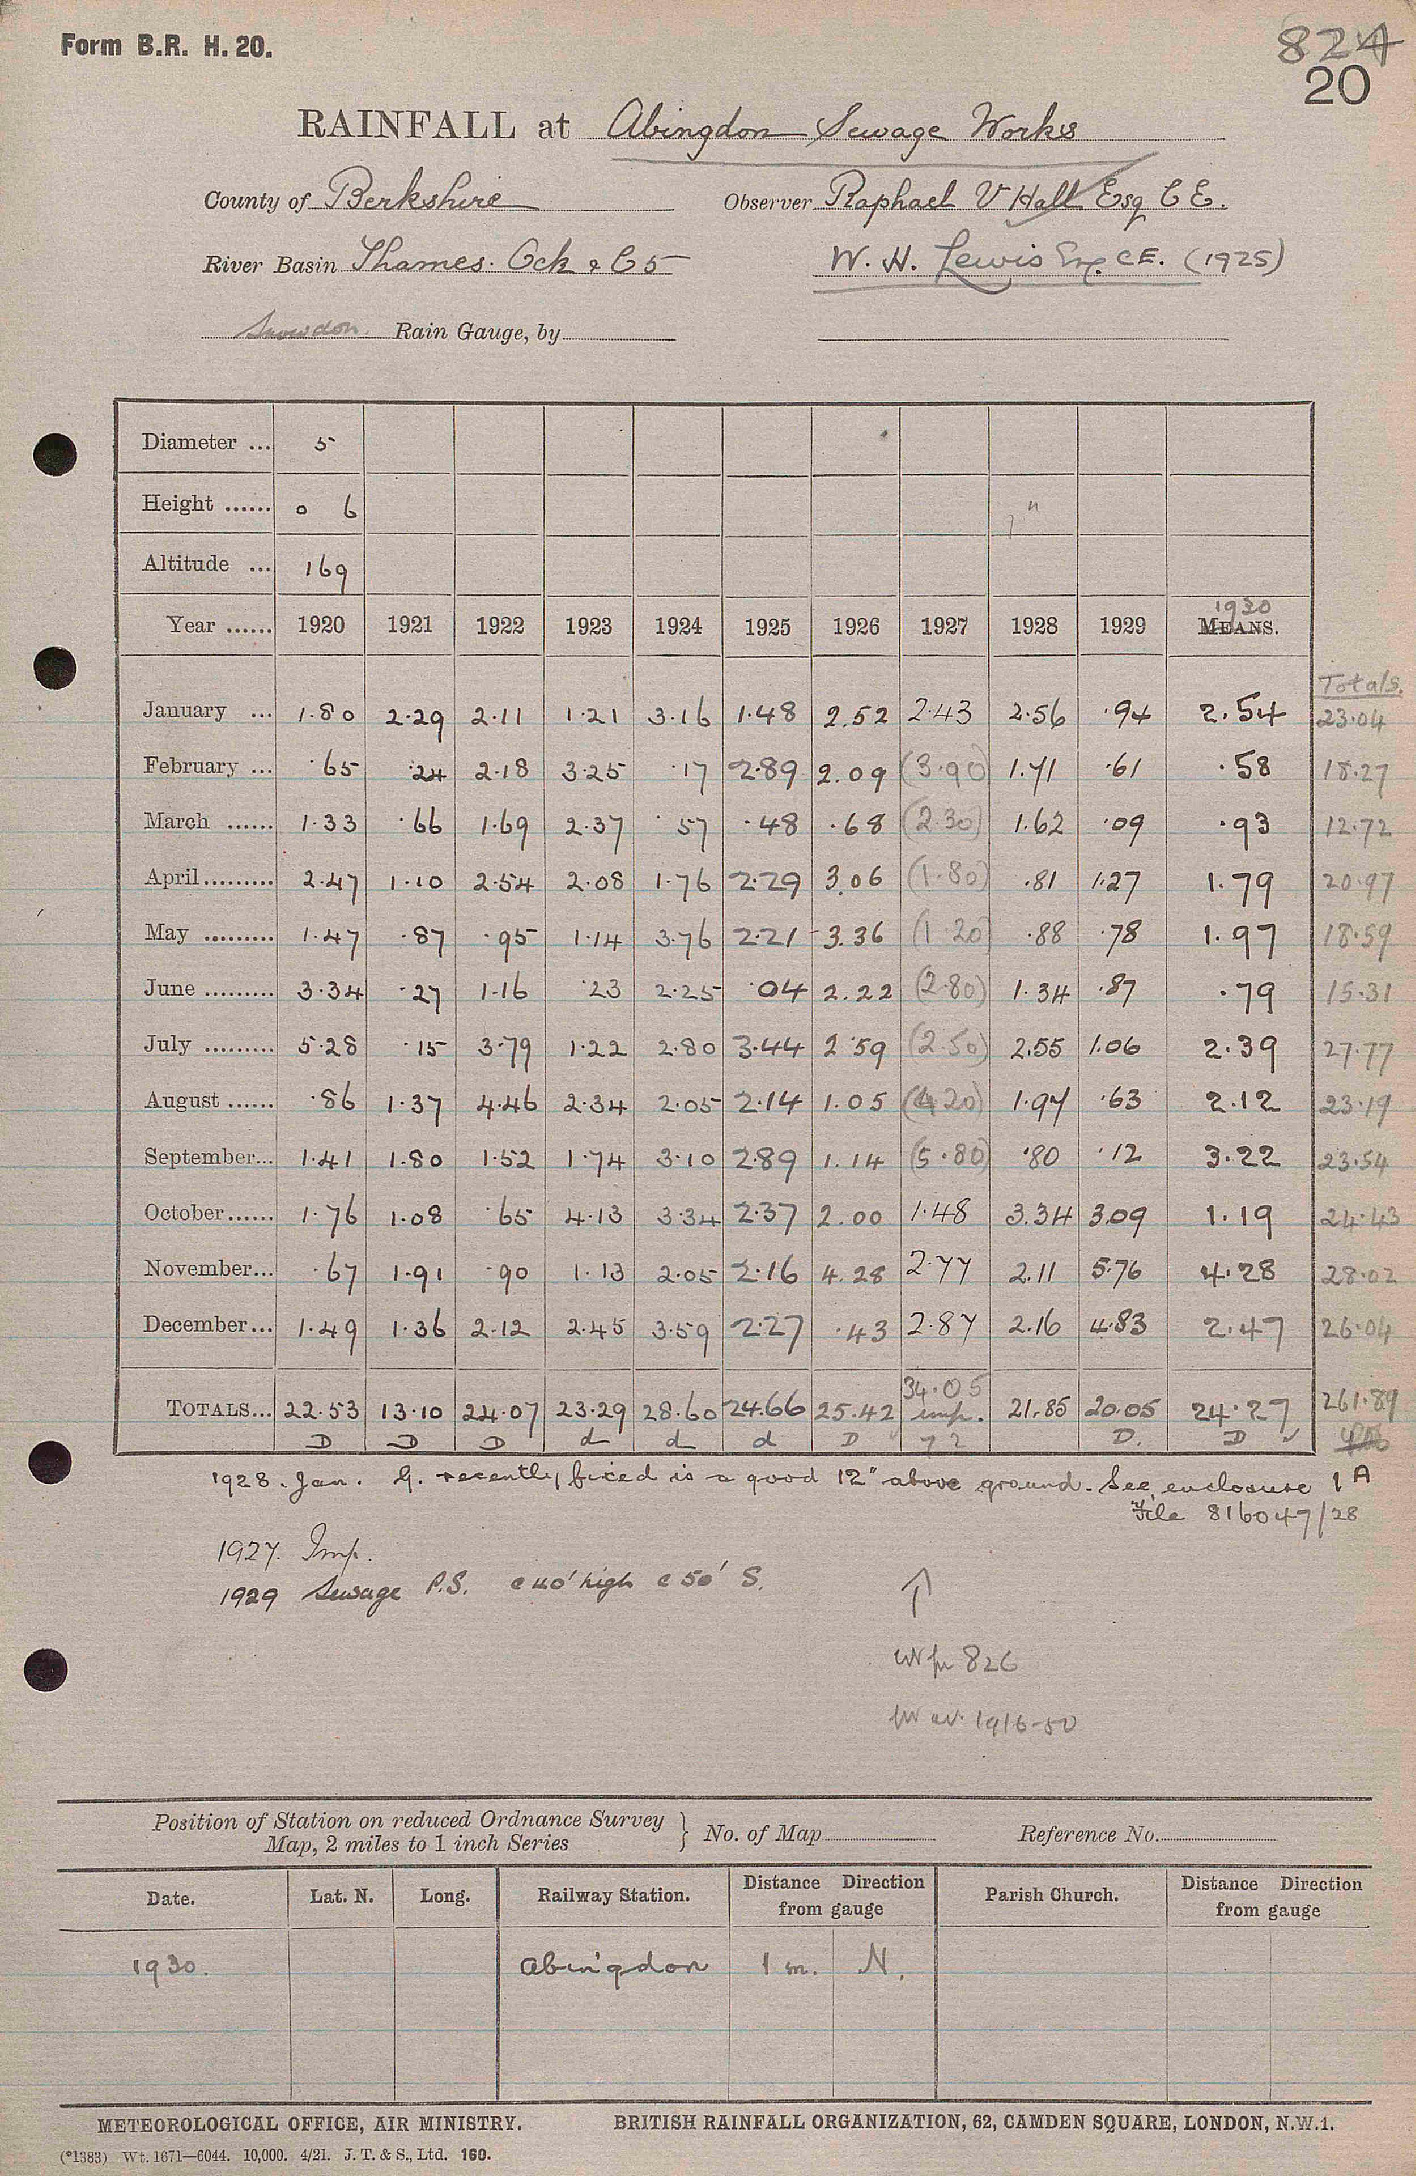 Form B.R. H. 20.
824
20
RAINFALL at Abingdon Sewage Works
County of Berkshire Observer Raphael V Hall Esq C E.
River Basin Thames. Ock & C 5 W. H. Lewis Esq. C E. (1925)
Snowdon Rain Gauge, by
Diameter ... 5
Height ...... 0 6 7"
Altitude ... 169
1930
Year ...... 1920 1921 1922 1923 1924 1925 1926 1927 1928 1929 MEANS.
Totals.
January ... 1.80 2.29 2.11 1.21 3.16 1.48 2.52 2.43 2.56 .94 2.54 23.04
February ... .65 .24 2.18 3.25 .17 2.89 2.09 (3.90) 1.71 .61 .58 18.27
March ...... 1.33 .66 1.69 2.37 .57 .48 .68 (2.30) 1.62 .09 .93 12.72
April ......... 2.47 1.10 2.54 2.08 1.76 2.29 3.06 (1.80) .81 1.27 1.79 20.97
May ......... 1.47 .87 .95 1.14 3.76 2.21 3.36 (1.20) .88 .78 1.97 18.59
June ......... 3.34 .27 1.16 .23 2.25 .04 2.22 (2.80) 1.34 .87 .79 15.31
July ......... 5.28 .15 3.79 1.22 2.80 3.44 2.59 (2.50) 2.55 1.06 2.39 27.77
August ...... .86 1.37 4.46 2.34 2.05 2.14 1.05 (4.20) 1.97 .63 2.12 23.19
September... 1.41 1.80 1.52 1.74 3.10 2.89 1.14 (5.80) .80 .12 3.22 23.54
October...... 1.76 1.08 .65 4.13 3.34 2.37 2.00 1.48 3.34 3.09 1.19 24.43
November... .67 1.91 .90 1.13 2.05 2.16 4.28 2.77 2.11 5.76 4.28 28.02
December... 1.49 1.36 2.12 2.45 3.59 2.27 .43 2.87 2.16 4.83 2.47 26.04
TOTALS... 22.53 13.10 24.07 23.29 28.60 24.66 25.42 34.05 imp. 21.85 20.05 24.27 261.89
D D D d d d D 7 2 D. D
1928. Jan. G. recently fixed is a good 12" above ground. See enclosure 1 A
File 816047/28
1927. Imp.
1929 Sewage P.S. c 40' high c 50' S.
826
1916-50
Position of Station on reduced Ordnance Survey
Map, 2 miles to 1 inch Series } No. of Map Reference No.
Date. Lat. N. Long. Railway Station. Distance Direction from gauge Parish Church. Distance Direction from gauge
1930. Abingdon 1 m. N.
METEOROLOGICAL OFFICE, AIR MINISTRY. BRITISH RAINFALL ORGANIZATION, 62, CAMDEN SQUARE, LONDON, N.W.1.
(*1383) Wt. 1671—6044. 10,000. 4/21. J. T. & S., Ltd. 160.